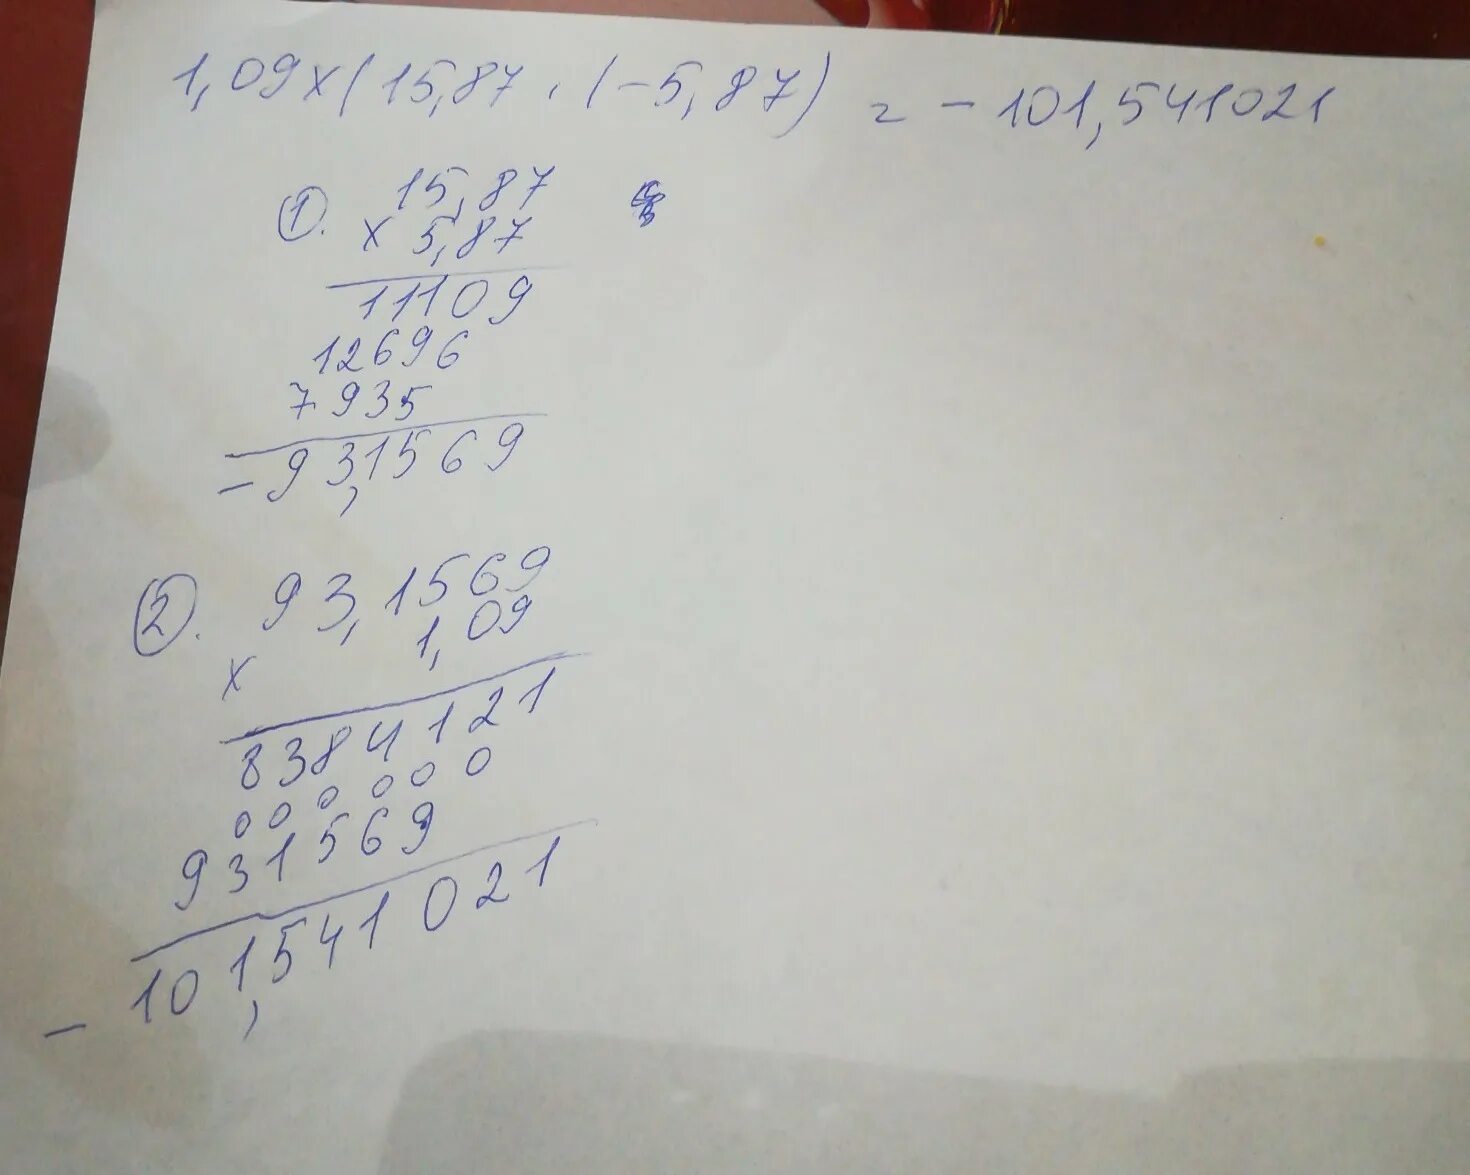 1,09 x (15,87 · (-5,87) = -101,541021
①. 15,87
x 5,87
11109
12696
7935
-93,1569
②. 93,1569
x 1,09
8384121
000000
931569
-101,541021